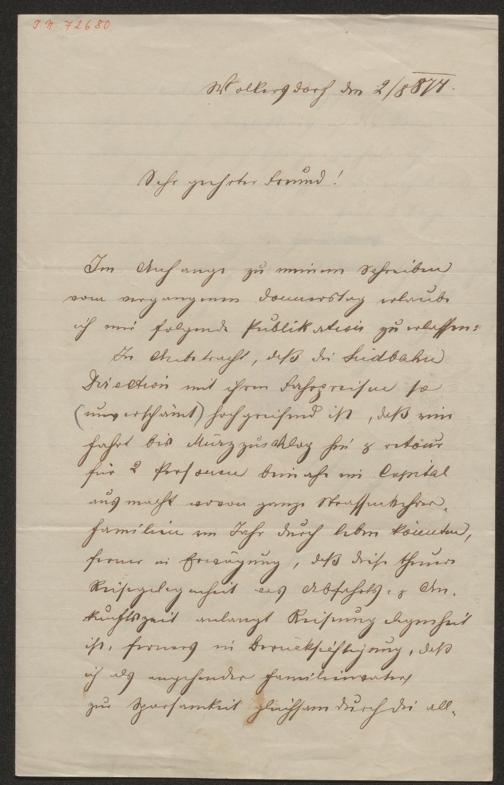 I N 72680
Wolkersdorf den 2/8 877.
Sehr geehrter Freund!
Im Anhange zu meinem Schreiben
vom vergangenem Donnerstag erlaube
ich mir folgende Publikation zu erlassen:
In Anbetracht, daß die Südbahn
Direction mit ihren Fahrpreisen so
(unverschämt) hochgreifend ist, daß eine
Fahrt bis Mürzzuschlag hin & retour
für 2 Personen beinahe ein Capital
ausmacht wovon ganze Strassenkehrer-
familien im Jahr durch leben könnten,
ferner in Erwägung, daß diese theuere
Reisegelegenheit was Abfahrts- & An-
kunftszeit anlangt
ist, ferners in Berücksichtigung, daß
ich als angehender Familienvater
zur Sparsamkeit gleichsam durch die all-